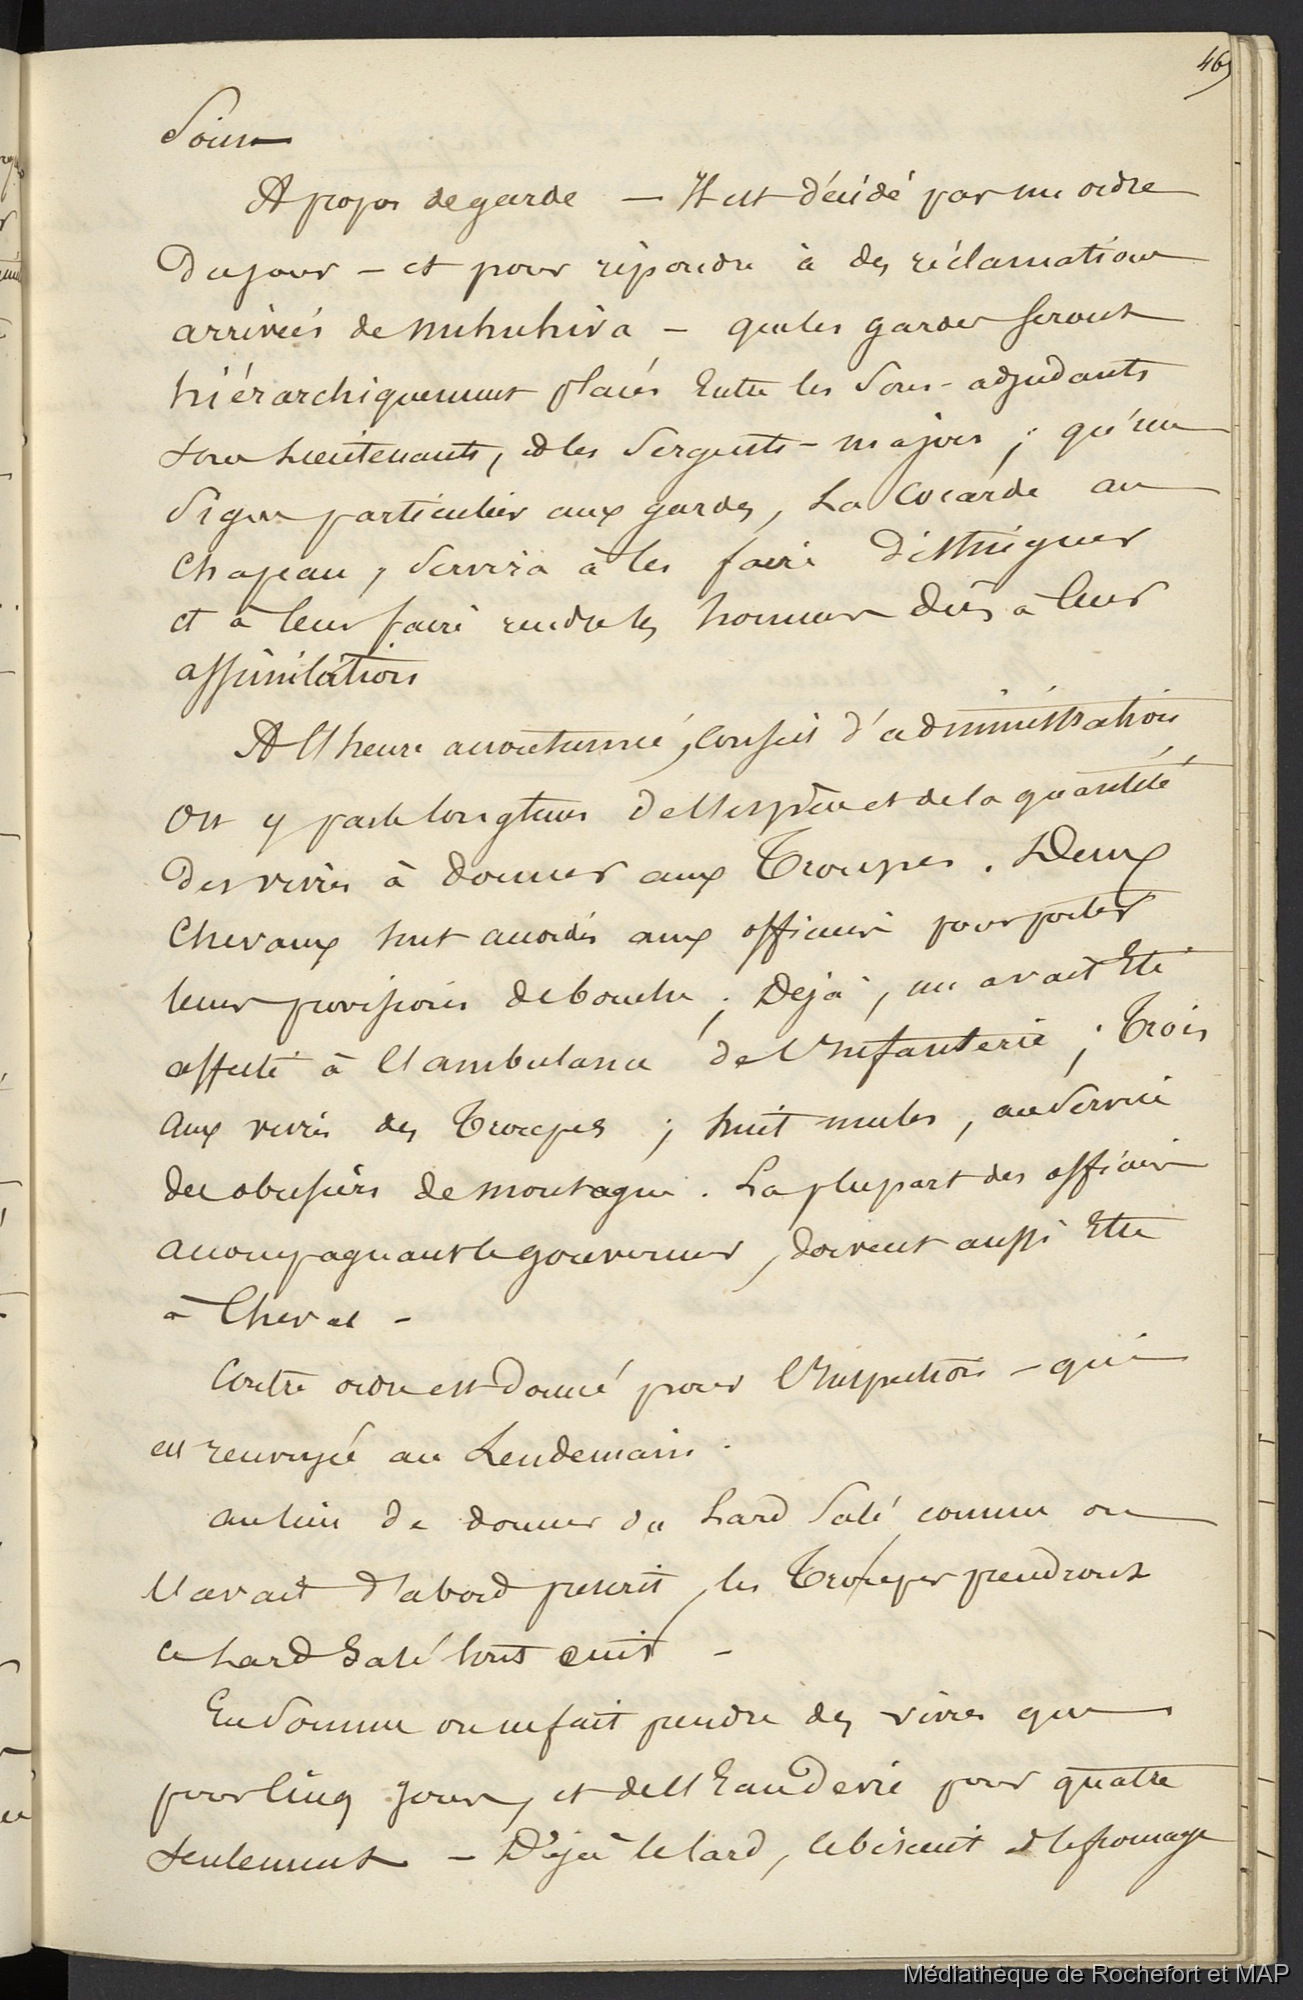 465
Soins
A propos de garde – Il est décidé par un ordre
Du jour – et pour répondre à des réclamations
arrivées de Nuhuhiva – que les gardes seront
hiérarchiquement placés Entre les Sous-adjudants
sous lieutenants, et les Sergents-majors ; qu'un
Signe particulier aux gardes, La Cocarde au
Chapeau, Servira à les faire Distinguer
et à leur faire rendre les honneurs Dûs à leur
assimilation
A l'heure accoutumée, Conseil d'administration
On y parle longtems de l'espèce et de la quantité
Des vivres à donner aux Troupes. Deux
Chevaux sont accordés aux officiers pour porter
leurs provisions de bouche ; Déjà, un avait Eté
affecté à l'ambulance de l'Infanterie ; Trois
aux vivres des Troupes ; huit mules, au Service
des obusiers de montagne. La plupart des officiers
accompagnant le gouverneur, doivent aussi Etre
à Cheval –
Contre ordre est Donné pour l'Inspection – qui
est renvoyée au Lendemain.
au lieu de donner du Lard Salé comme on
l'avait d'abord prescrit, les Troupes prendront
ce Lard Salé tout cuit –
En Somme on ne fait prendre des vivres que
pour Cinq Jours, et de l'Eau De vie pour quatre
Seulement – Déjà le lard, le biscuit et le fromage
Médiathèque de Rochefort et MAP